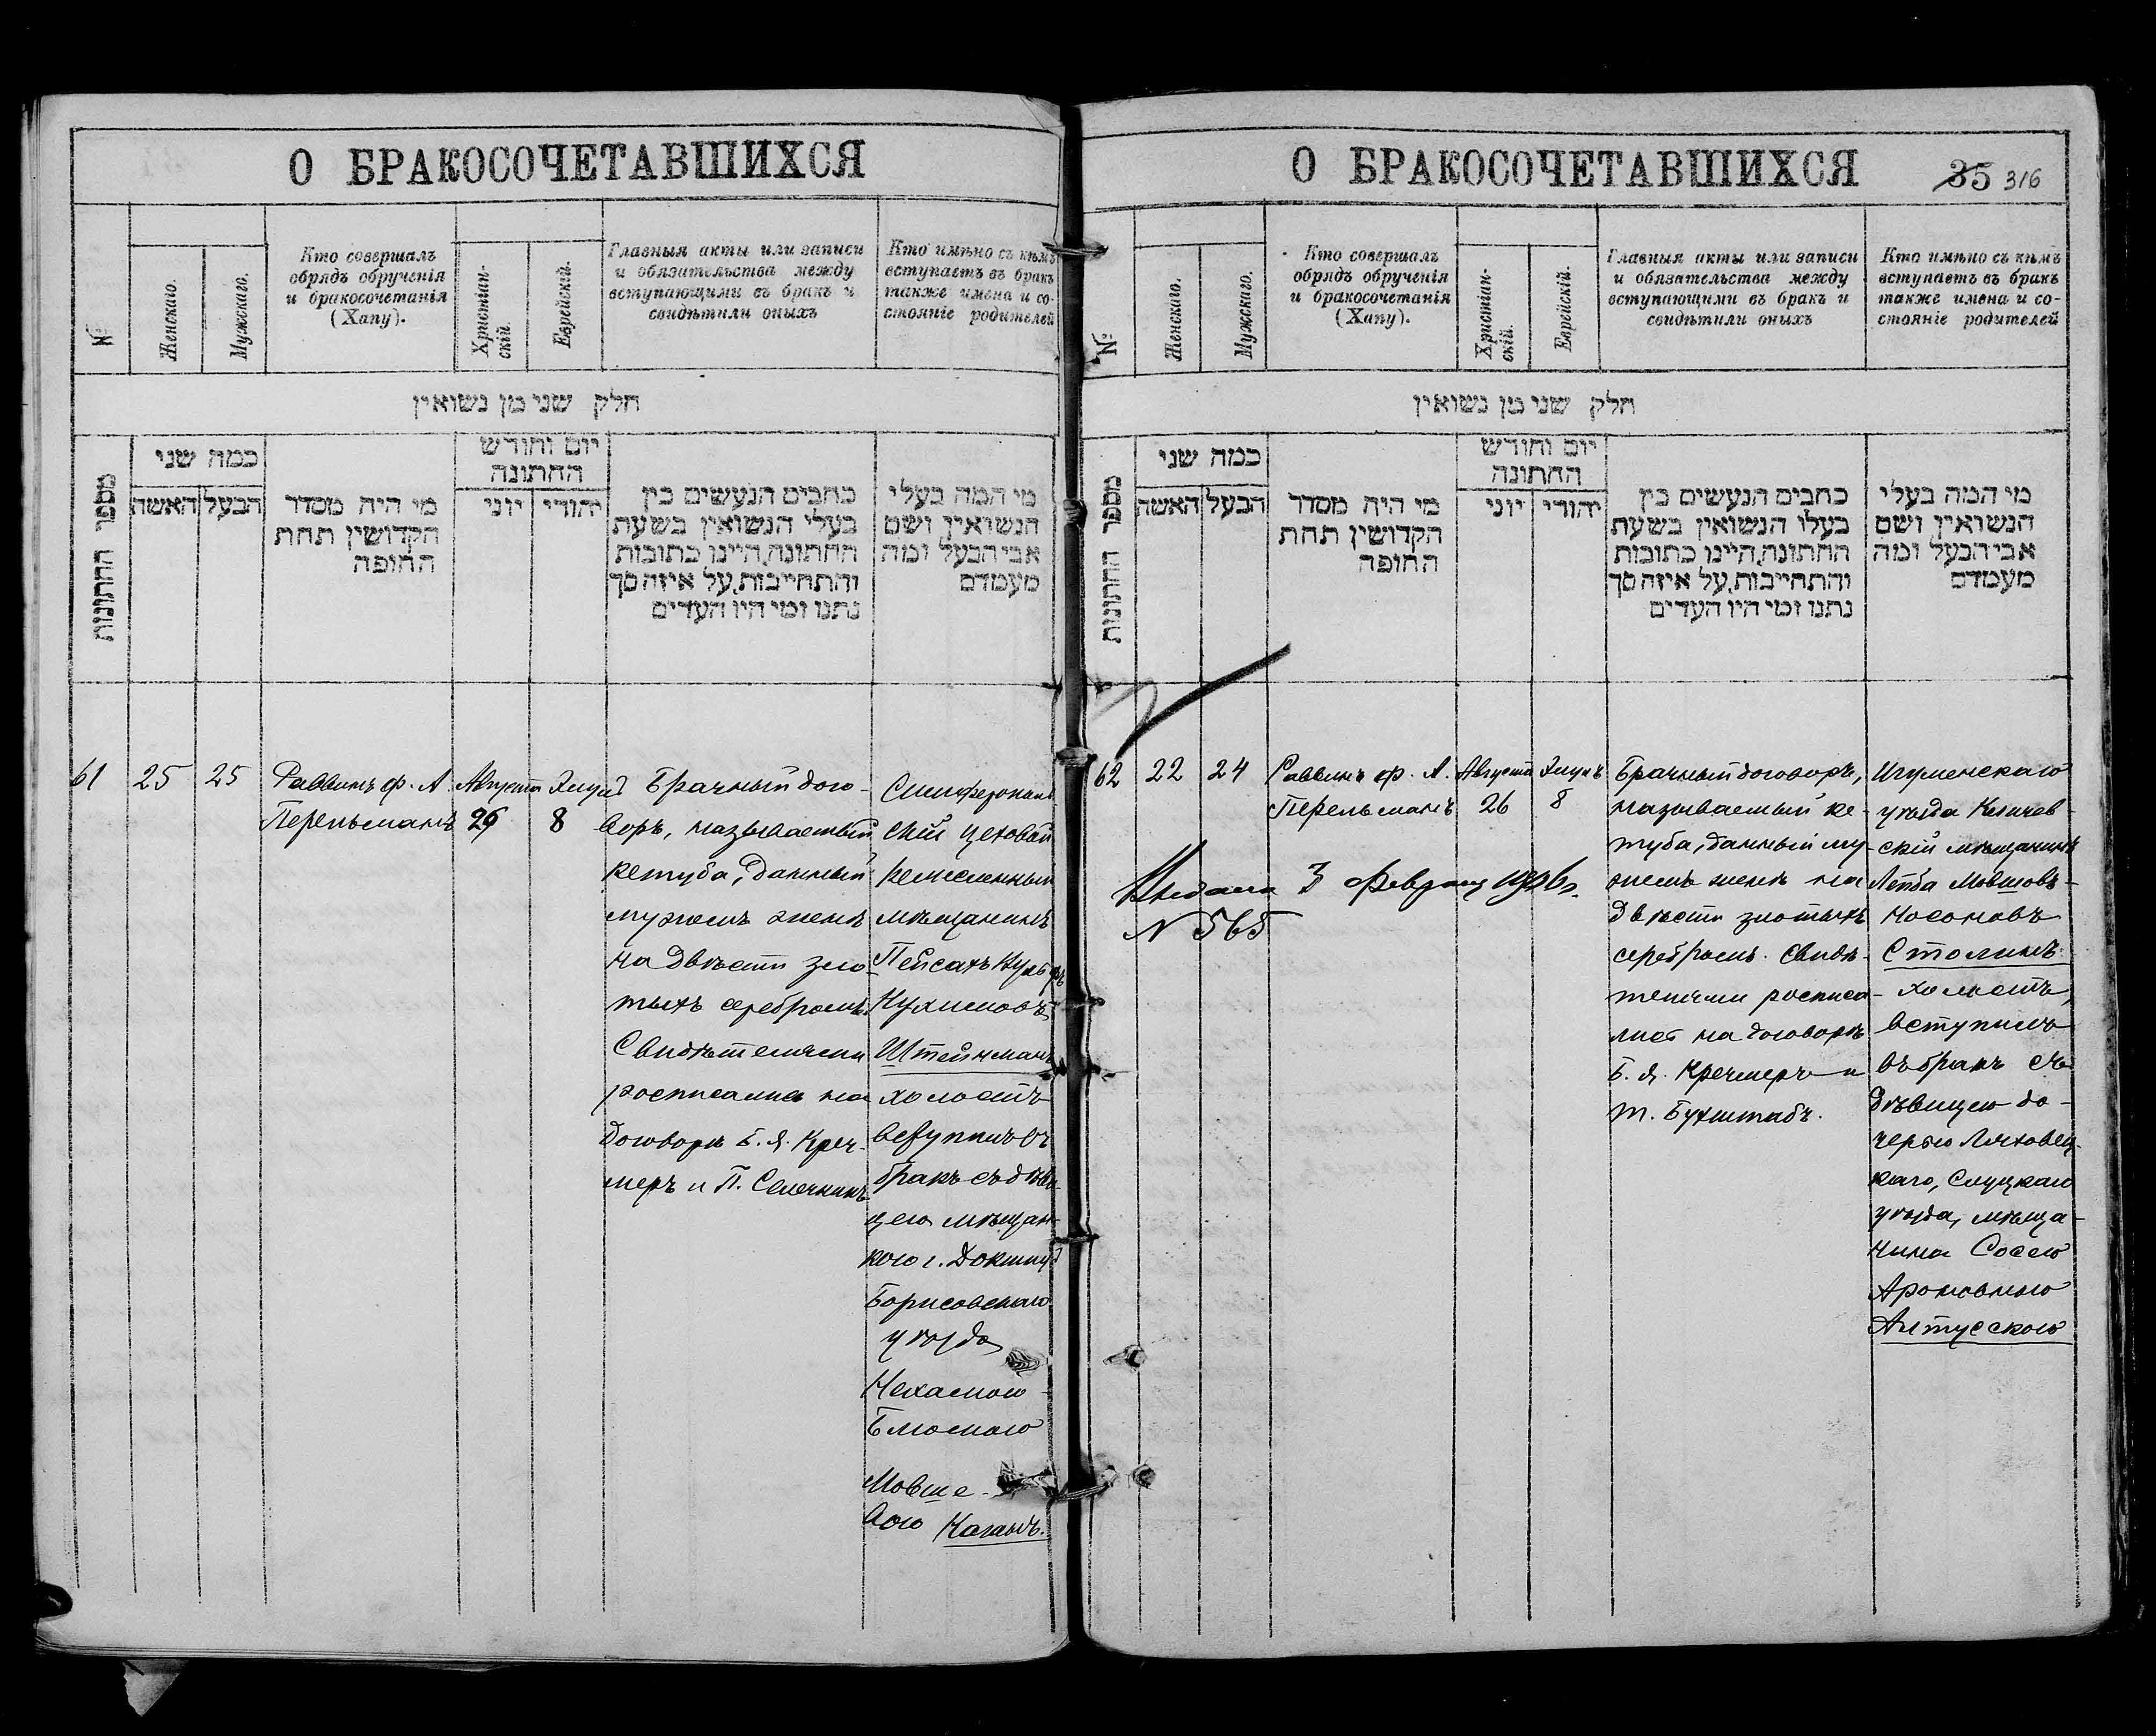 О БРАКОСОЧЕТАВШИХСЯ
№
Женскаго.
Мужскаго.
Кто совершалъ
обрядъ обрученія
и бракосочетанія
(Хапу).
Христіан-
скій.
Еврейскій.
Главныя акты или записи
и обязательства между
вступающими въ бракъ и
свидѣтили оныхъ
Кто имѣно съ кѣмъ
вступаетъ въ бракъ
также имена и со-
стояніе родителей
חלק שני מן נשואין
מספר החתונות
כמה שני
האשה
הבעל
מי היה מסדר
הקדושין תחת
החופה
יום וחודש
החתונה
יוני
יהודי
כתבים הנעשים בין
בעלי הנשואין בשעת
החתונה, היינו כתובות
והתחייבות, על איזה סך
נתנו ומי היו העדים
מי המה בעלי
הנשואין ושם
אבי הבעל ומה
מעמדם
61
25
25
Раввинъ ф. А.
Перельманъ
Августа
26
Элулъ
8
Брачный дого-
воръ, называемый
кетуба, данный
мужемъ женѣ
на двѣсти зло-
тыхъ серебромъ.
Свидѣтелями
росписались на
договорѣ Б. Я. Креч-
меръ и П. Селечникъ
Симферополь
скій цеховой
ремесленный
мѣщанинъ
Пейсахъ
Нухимовъ
Штейнманъ
холостъ
вступилъ въ
бракъ съ дѣви-
цею мѣщан-
кою г. Докшицъ
Борисовскаго
уѣзда
Нехамою-
Блюмою
Мовше-
вою Каганъ.
О БРАКОСОЧЕТАВШИХСЯ
35 316
№
Женскаго.
Мужскаго.
Кто совершалъ
обрядъ обрученія
и бракосочетанія
(Хапу).
Христіан-
скій.
Еврейскій.
Главныя акты или записи
и обязательства между
вступающими въ бракъ и
свидѣтили оныхъ
Кто имѣно съ кѣмъ
вступаетъ въ бракъ
также имена и со-
стояніе родителей
חלק שני מן נשואין
מספר החתונות
כמה שני
האשה
הבעל
מי היה מסדר
הקדושין תחת
החופה
יום וחודש
החתונה
יוני
יהודי
כתבים הנעשים בין
בעלו הנשואין בשעת
החתונה, היינו כתובות
והתחייבות, על איזה סך
נתנו ומי היו העדים
מי המה בעלי
הנשואין ושם
אבי הבעל ומה
מעמדם
62
22
24
Раввинъ ф. А.
Перельманъ
Августа
26
Элулъ
8
Выдана 3 февраля 1926 г.
N 565
Брачный договоръ,
называемый ке-
туба, данный му-
жемъ женѣ на
двѣсти злотыхъ
серебромъ. Свидѣ-
телями росписа-
лись на договорѣ
Б. Я. Кречмеръ и
Т. Бухштабъ.
Игуменскаго
уѣзда
скій мѣщанинъ
Лейба Мовшовъ-
Носоновъ
Столинъ
холостъ,
вступилъ
въ бракъ съ
дѣвицею до-
черью Ляховец-
каго, Слуцкаго
уѣзда, мѣща-
нина Сосею
Ароновною
Алтусскою